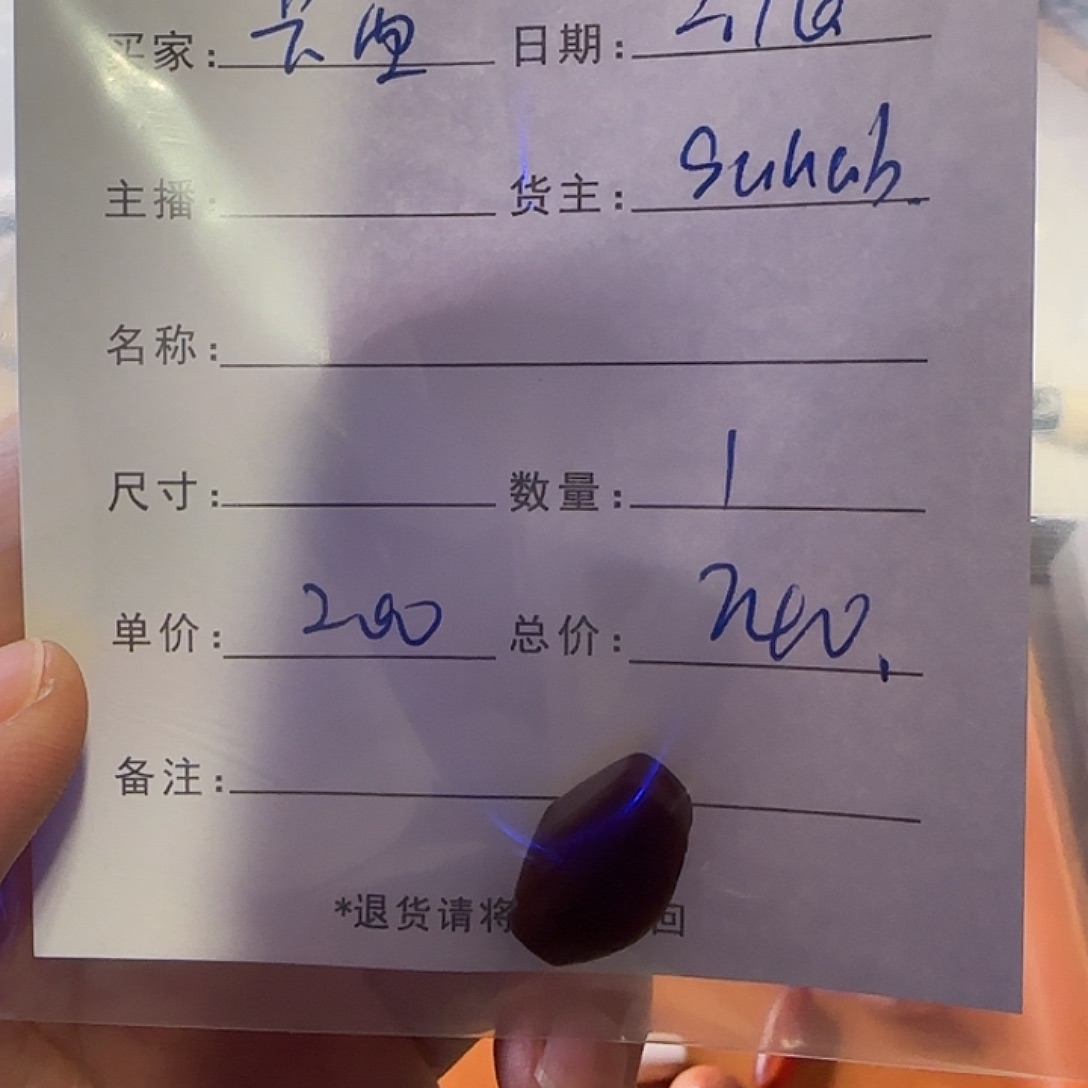 买家: 日期:
主播: 货主: Suhab.
名称:
尺寸: 数量: 1
单价: 200 总价:
备注:
*退货请将 回